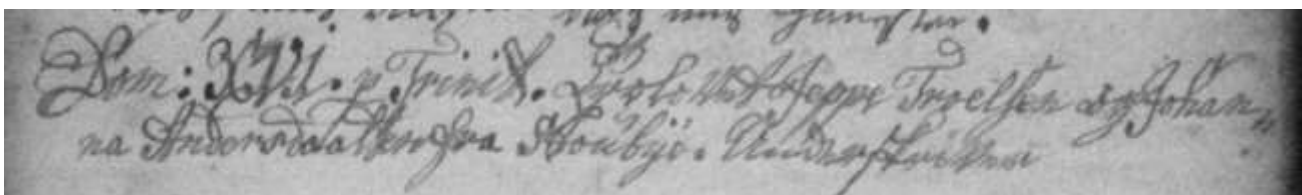 og
Dom: XVII. p Trinit. Trolovet Jeppe Troelsen og Johan=
na Andersdaatter fra Skoubÿe. Underskreven